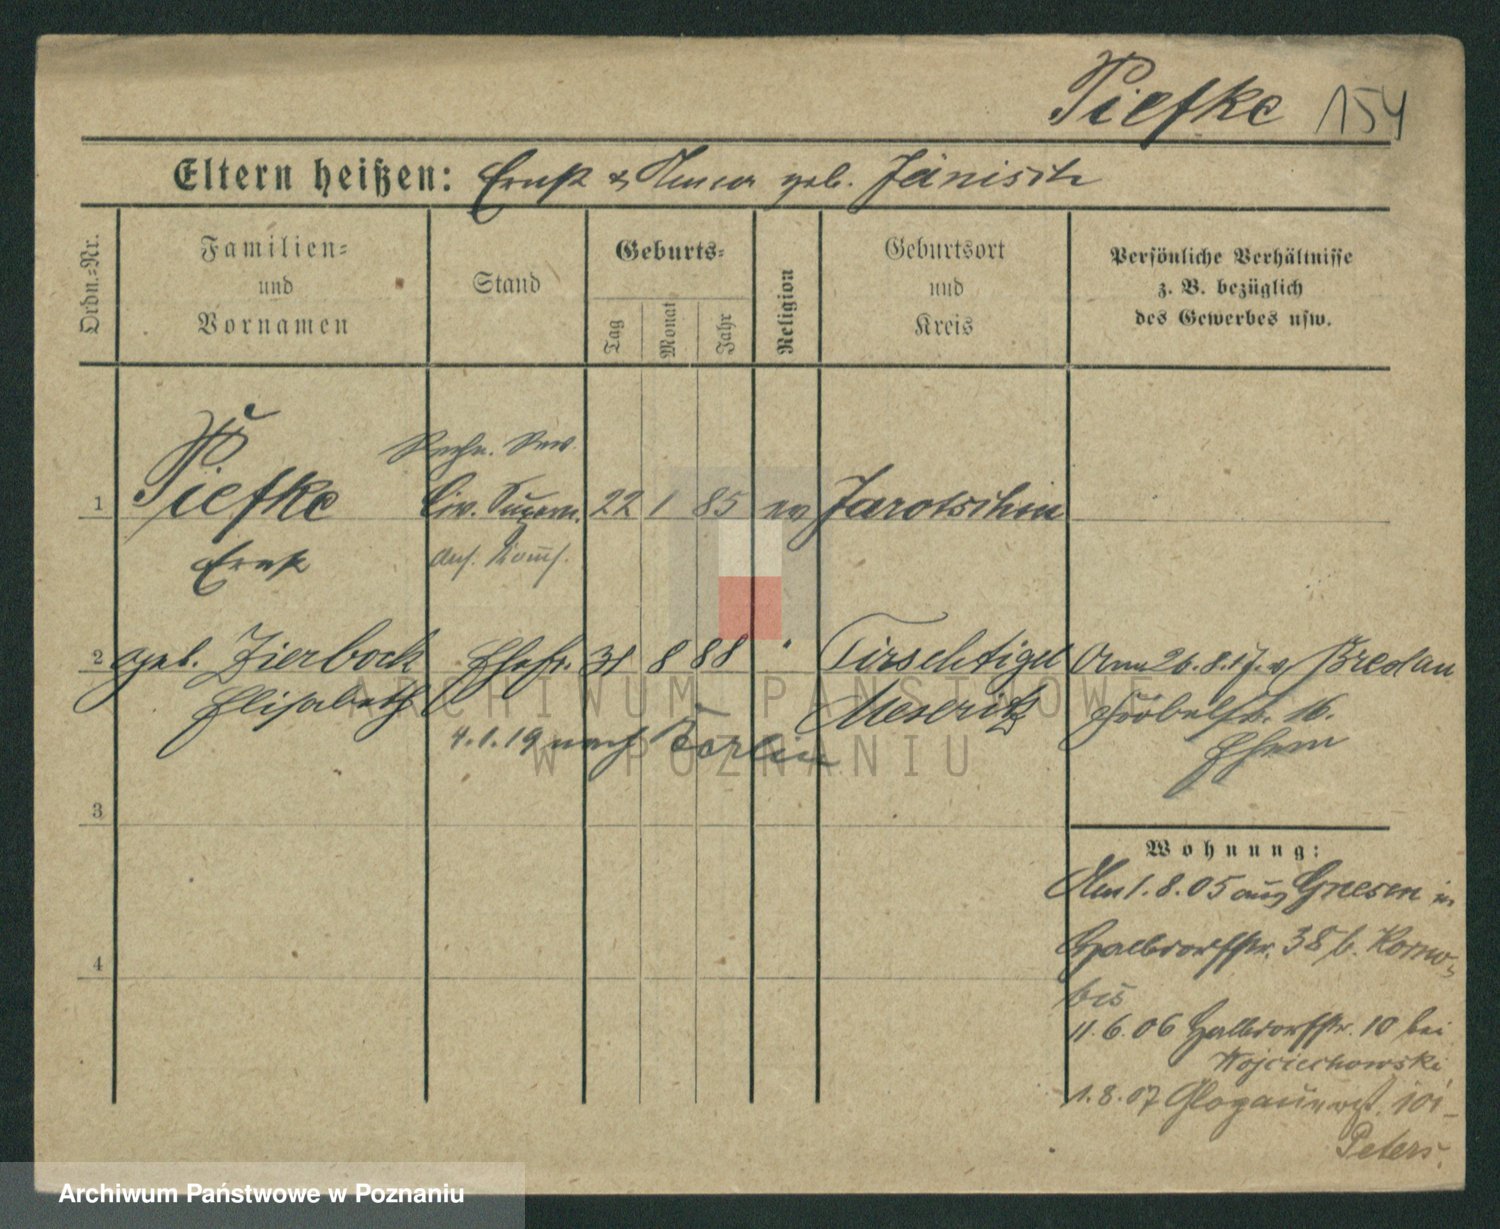 Piefke 154
Eltern heißen: Ernst & Anna geb. Jänisch
Ordn.-Nr.
Familien-
und
Vornamen
Stand
Geburts-
Tag
Monat
Jahr
Religion
Geburtsort
und
Kreis
Persönliche Verhältnisse
z. B. bezüglich
des Gewerbes usw.
1 Piefke
Ernst
Civ. Supern.
22 1 85 ev Jarotschin
2 geb. Zierbock
Elisabeth
Ehefr. 31 8 88 " Tirschtigel
Meseritz
4.1.19 nach Berlin
Am 26.8.17. v Breslau
16.
Ehem
3
4
Wohnung:
Am 1.8.05 aus Gnesen in
Halbdorfstr. 38 b.
bis
11.6.06 Halbdorfstr. 10 bei
Wojciechowski
1.8.07 Glogauerstr. 101
Peters.
ARCHIWUM PAŃSTWOWE
W POZNANIU
Archiwum Państwowe w Poznaniu